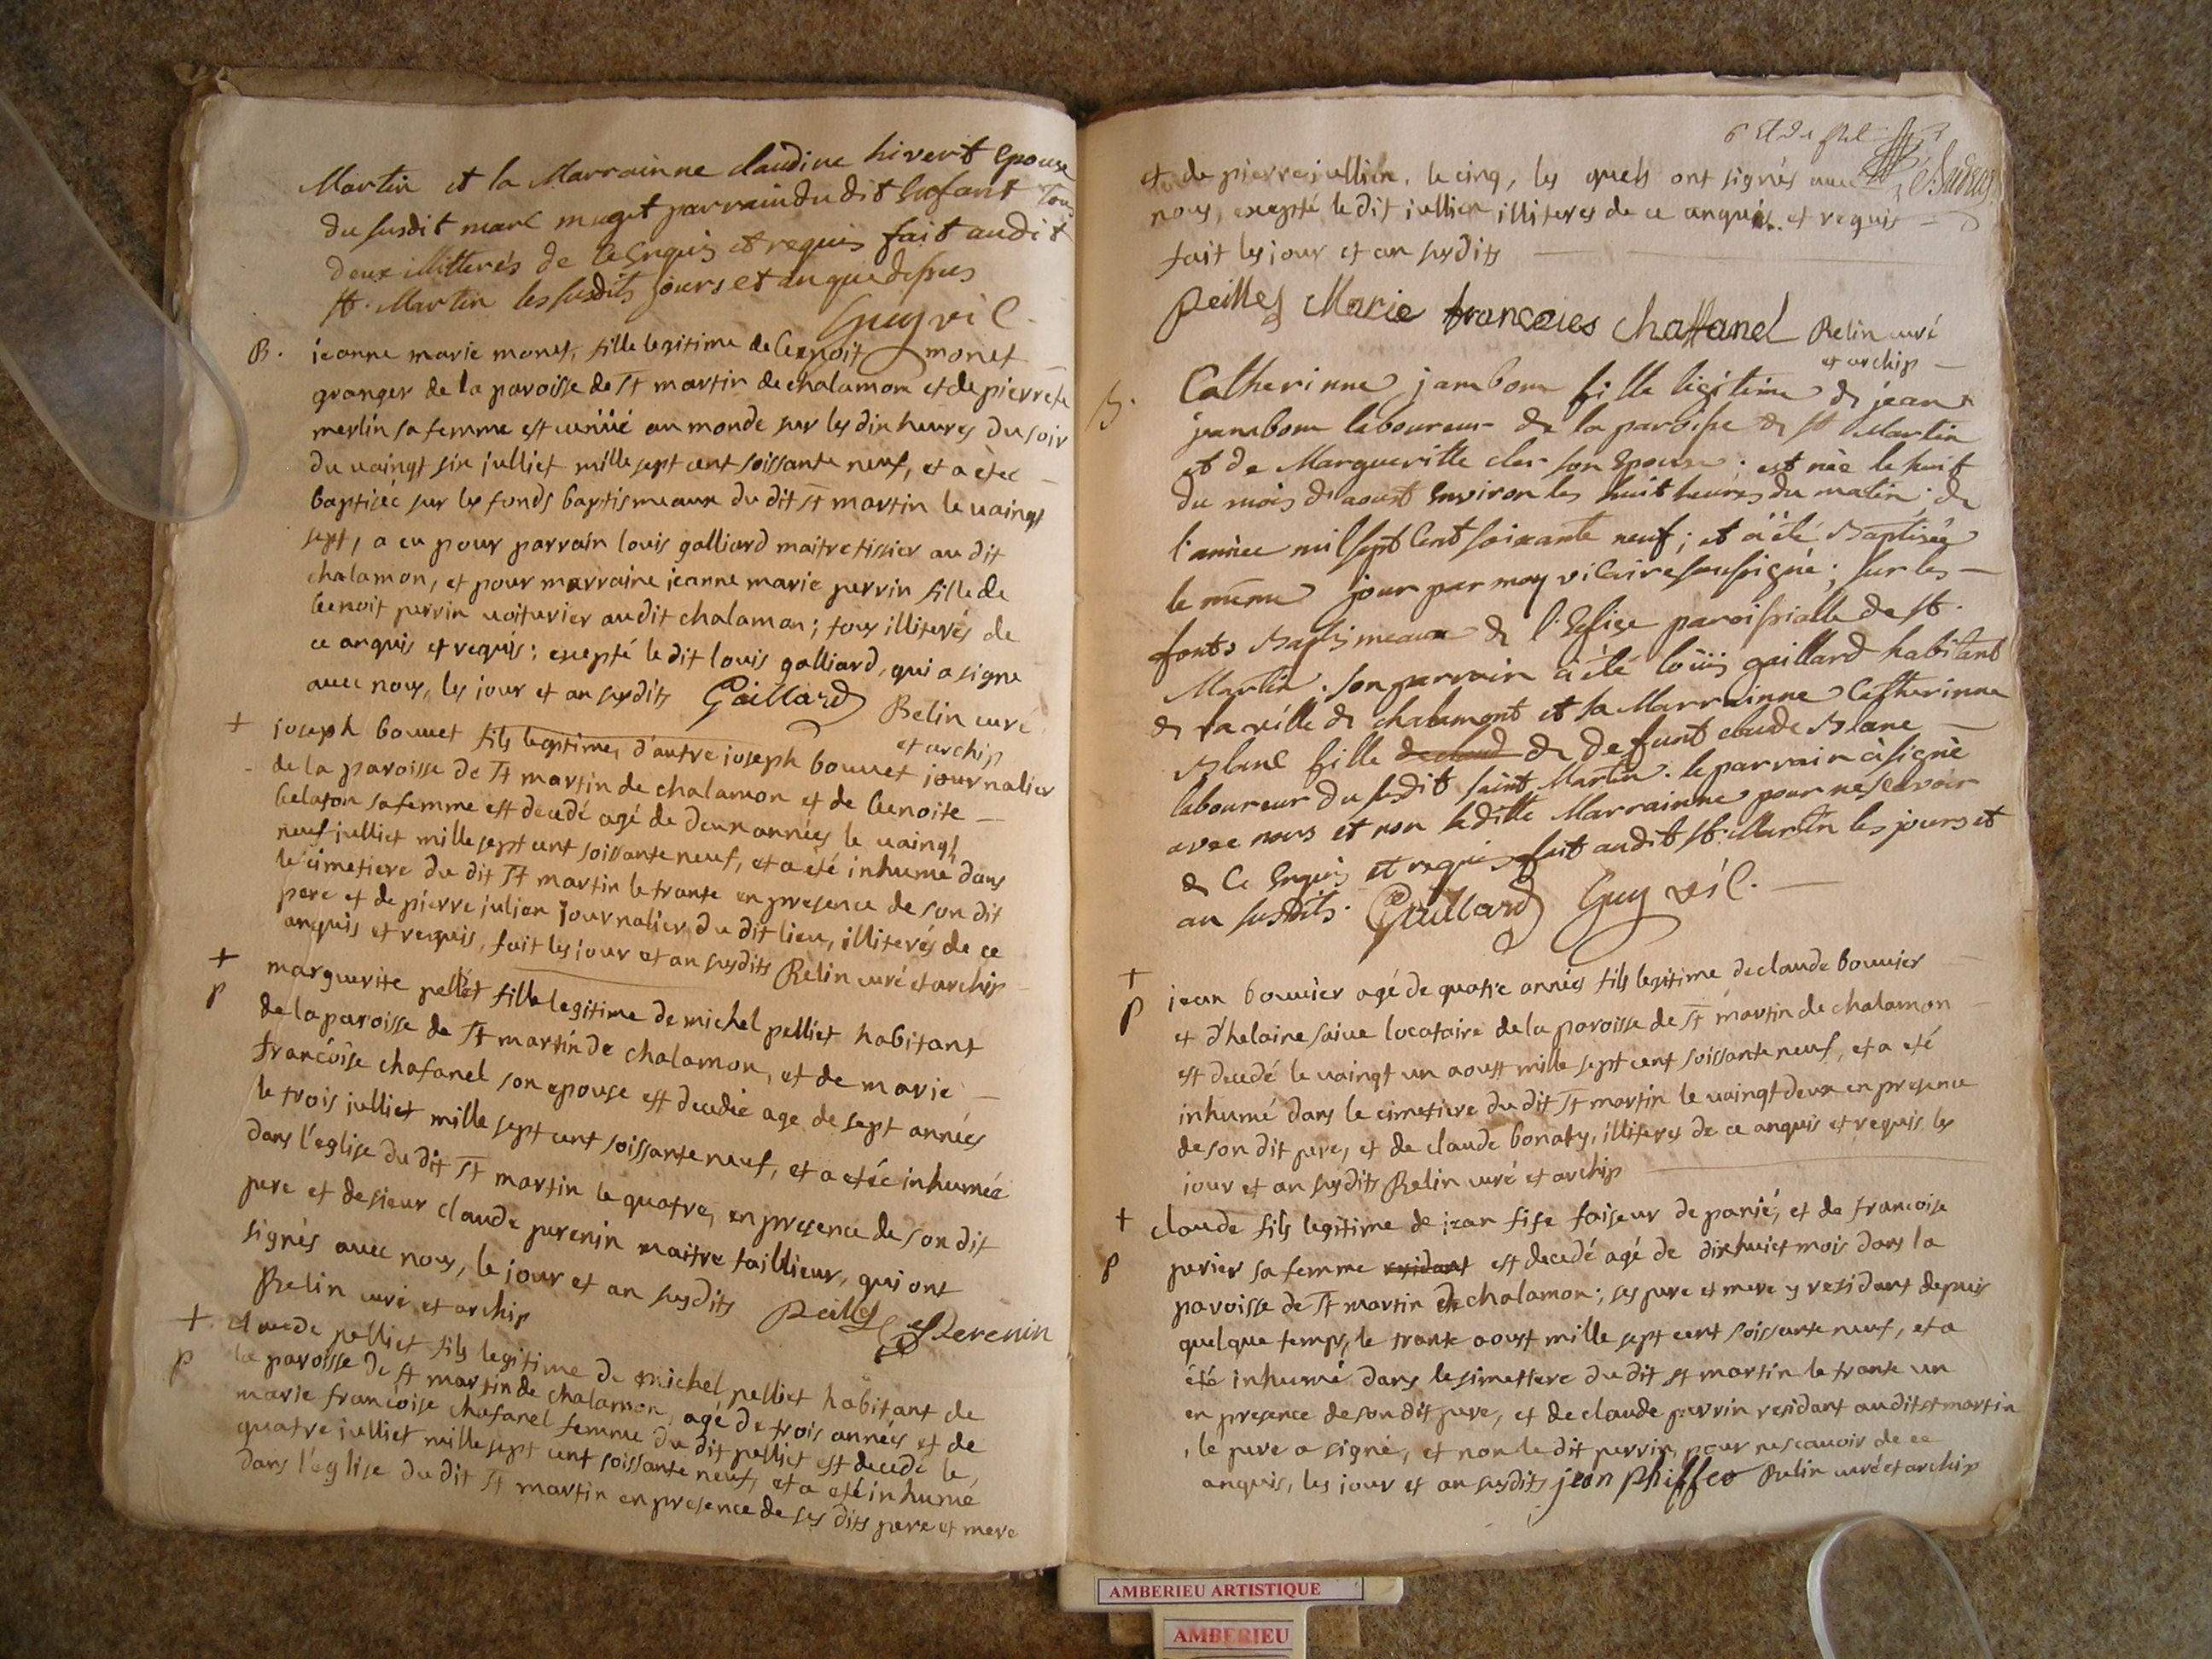 Martin et la Marrainne claudine hivert Epouse
du susdit marc muget parrain du dit Enfant Tous
deux illitterés de ce Enquis et requis fait audit
St. Martin les susdits jours et an que dessus
Guy vic.
B. jeanne marie monet, fille legitime de benoit monet
granger de la paroisse de St martin de chalamon et de pierrete
merlin sa femme est venüe au monde sur les dix heures du soir
du vaingt six julliet mille sept cent soissante neuf, et a étee
baptisée sur les fonds baptismeaux du dit St martin le vaingt
sept, a eu pour parrain louis galliard maitre tissier au dit
chalamon, et pour marraine jeanne marie perrin fille de
benoit perrin voiturier audit chalamon; tous illiterés de
ce anquis et requis; exepté le dit louis galliard, qui a signe
avec nous, les jour et an susdits Gaillard Relin curé
et archip
+ joseph bouvet fils legitime, d'autre joseph bouvet journalier
de la paroisse de St martin de chalamon et de benoite
belaton sa femme est decedé agé de deux années le vaingt
neuf julliet mille sept cent soissante neuf, et a été inhumé dans
le cimetiere du dit St martin le trante en presence de son dit
pere et de pierre julien journalier du dit lieu, illiterés de ce
anquis et requis, fait les jour et an susdits Relin curé et archip
+ marguerite pelliet fille legitime de michel pelliet habitant
p de la paroisse de St martin de chalamon, et de marie
francoise chafanel son epouse est decedée age de sept années
le trois julliet mille sept cent soissante neuf, et a etée inhumée
dans l'eglise du dit St martin le quatre, en presence de son dit
pere et de sieur claude perenin maitre taillieur, qui ont
signés avec nous, le jour et an susdits Peilles Perenin
Relin curé et archip
+ claude pelliet fils legitime de michel pelliet habitant de
p la paroisse de st martin de chalamon, agé de trois années et de
marie francoise chafanel femme du dit pelliet est decedé le,
quatre julliet mille sept cent soissante neuf, et a eté inhumé
dans l'église du dit St martin en presence de ses dits pere et mere
et de pierre jullien, le cinq, les quels ont signés avec
nous, exepté le dit jullien illiteres de ce anquis et requis
fait les jour et an susdits
Peilles Marie francoeies chaffanel Relin curé
et archip
B. Catherinne jambon fille legitime de jean
jambon laboureur de la paroisse de st Martin
et de Margueritte cler son Epouse; est née le huit
du mois d'aoust Environ les huit heures du matin; de
l'année mil sept Cent soixante neuf; et a été Baptisée
le même jour par moy vicaire soussigné; sur les
fonts Baptismeaux de l'Eglise paroissialle de St.
Martin. son parrain a été loüis gaillard habitant
de la ville de chalamont et sa Marrainne Catherinne
Blanc fille de claud de defunt claude Blanc
laboureur du susdit saint Martin. le parrain a signé
avec nous et non laditte Marrainne pour ne sçavoir
de Ce Enquis et requis fait audit St. Martin les jours et
an susdits. Gaillard Guy vic.
+ jean bouvier agé de quatre années fils legitime de claude bouvier
p et d'helaine saive locataire de la paroisse de St martin de chalamon
est decedé le vaingt un aoust mille sept cent soissante neuf, et a eté
inhumé dans le cimetiere du dit St martin le vaingt deux en presence
de son dit pere, et de claude bonaty, illiteres de ce anquis et requis les
jour et an susdits Relin curé et archip
+ claude fils legitime de jean fife faiseur de panié, et de francoise
p perier sa femme residant est decedé agé de dixhuict mois dans la
paroisse de St martin de chalamon; ses pere et mere y residant depuis
quelque temps, le trante aoust mille sept cent soissante neuf, et a
été inhumé dans le simettere du dit st martin le trante un
en presence de son dit pere, et de claude perrin residant audit st martin
, le pere a signé, et non le dit perrin, pour ne scavoir de ce
anquis, les jour et an susdits jean phiffeo Relin curé et archip
AMBERIEU ARTISTIQUE
AMBERIEU